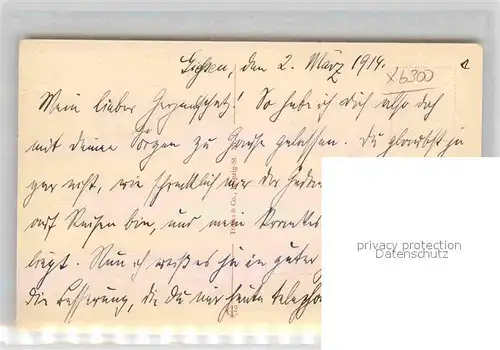 Gießen, den 2. März 1914.
x6300
Mein lieber Herzensschatz! So habe ich Dich also doch
mit deinen Sorgen zu Hause gelassen. Du glaubst ja
gar nicht, wie schrecklich mir der
auf Reisen bin, und mein
liegt. Nun ich weiß es ja in guter
die Besserung, die Du mir heute
privacy protection
Datenschutz
& Co., Leipzig